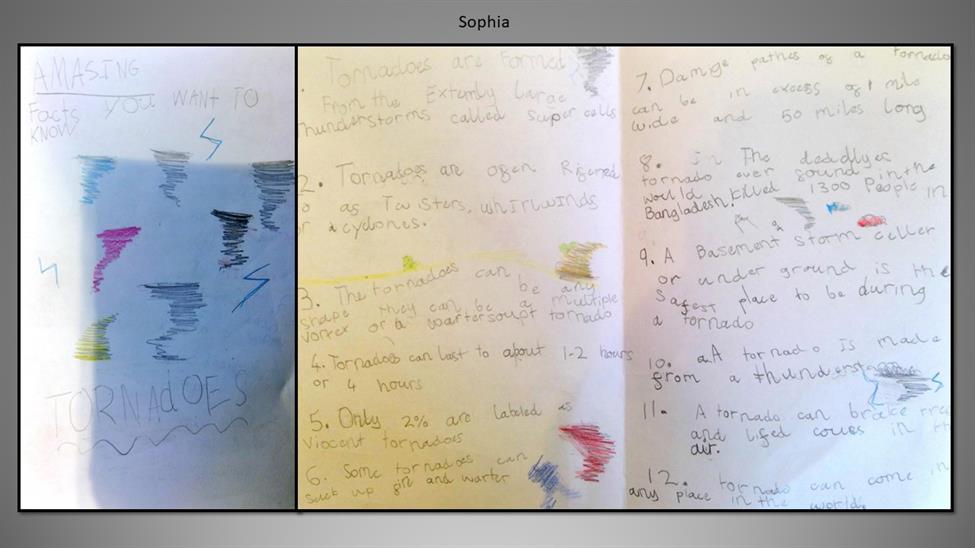 Sophia
AMASING
Facts YOU WANT TO
KNOW
TORNAdOES
Tornadoes are Formed
From the Extemly Large
Thunderstorms called super cells
2. Tornadoes are ofen
as Twisters, whirlwinds
or cyclones.
3. The tornadoes can be any
shape they can be a multiple
vortex or a tornado
4. Tornadoes can last to about 1-2 hours
or 4 hours
5. Only 2% are labeled as
Viocent tornadoes
6. Some tornadoes can
suck up and warter
7. Damige pathes of a tornado
can be in excess of 1 mile
wide and 50 miles long
8. In The deadlyes
tornado ever in the
world killed 1300 People in
Bangladesh,
9. A Basement storm celler
or under ground is the
Safest place to be during
a tornado
10. A tornado is made
from a
11. A tornado can brake
and lifed in
air.
12. tornado can come in
any place in the world.